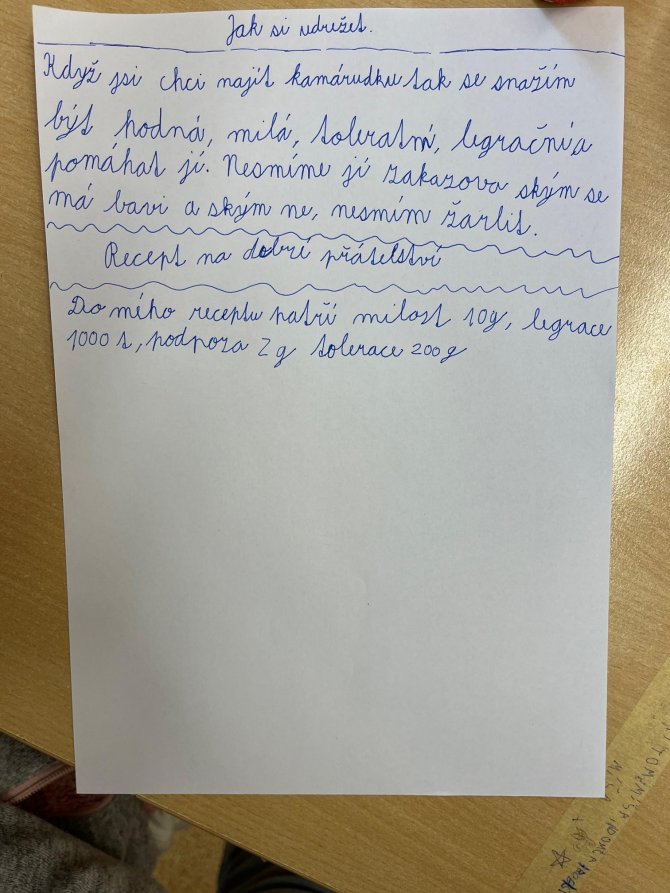 Jak si udržet.
Když jsi chci najít kamárudku tak se snažím
být hodná, milá, toleratní, legrační,a
pomáhat jí. Nesmíme jí zakazova ským se
má bavi a ským ne, nesmím žarlit.
Recept na dobré přátelství
Do mého receptu patří milost 10g, legrace
1000 t, podpora 2 g tolerace 200g